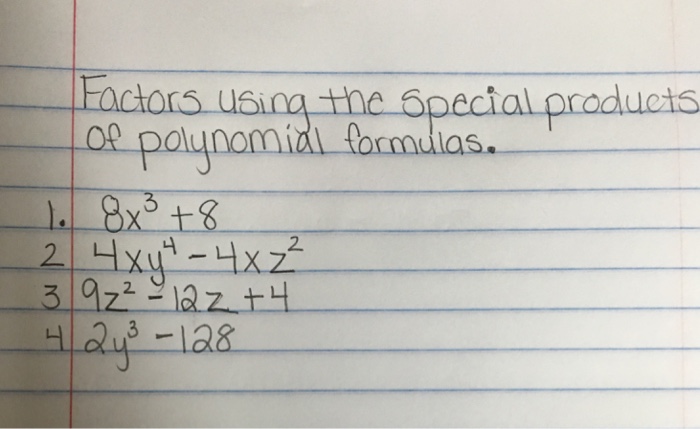 Factors using the special products
of polynomial formulas.
1. 8x³ + 8
2 4xy⁴ - 4xz²
3 9z² - 12z + 4
4 2y³ - 128